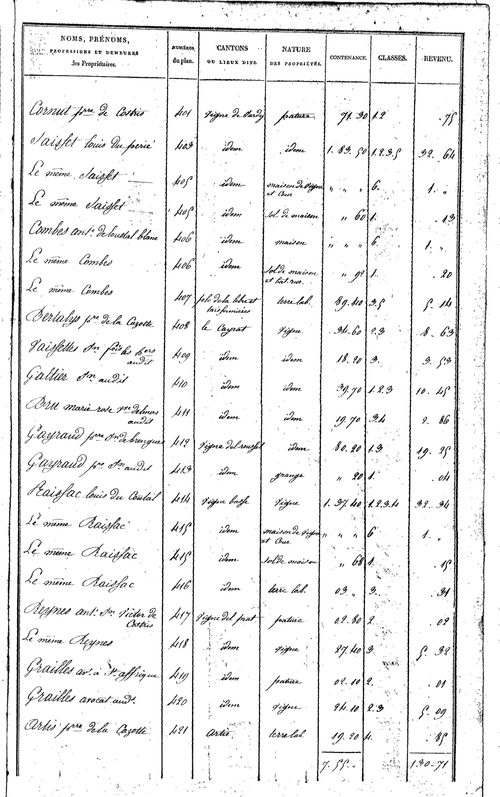 NOMS, PRÉNOMS, PROFESSIONS ET DEMEURES des Propriétaires. NUMÉROS du plan. CANTONS OU LIEUX DITS. NATURE DES PROPRIÉTÉS. CONTENANCE. CLASSES. REVENU.
Cornut pre de Costris 401 Vigne de Vardy pature 71. 30 1.2 . 75
Saisset louis du perié 403 idem idem 1. 83. 50 1.2.3.5 32. 64
Le même Saisset 405 idem maison de Vigne et Cour " " " 6. 1. "
Le même Saisset 405 idem sol de maison " 60 1. . 13
Combes ant. de loustal blanc 406 idem maison " " " 6. 1. "
Le même Combes 406 idem sol de maison " 92 1. . 20
Le même Combes 407 terre lab. 89. 40 3.5 5. 14
Bertalys pre de la Cazotte 408 le Cayrat Vigne 34. 60 2.3 8. 63
Vaissettes Jn audit 409 idem idem 18. 20 3. 3. 53
Galtier Jn audit 410 idem idem 39. 70 1.2.3 10. 45
Bru marie rose audit 411 idem idem 19. 70 3.4 2. 86
Gayraud pre 412 idem 80. 20 1.3 19. 25
Gayraud pre Jn audit 413 idem grange " 20 1. . 04
Raissac louis du Coulait 414 Vigne basse Vigne 1. 37. 40 1.2.3.4 32. 34
Le même Raissac 415 idem maison de Vigne et Cour " " " 6 1. "
Le même Raissac 415 idem sol de maison " 68 1. . 15
Le même Raissac 416 idem terre lab. 03 " 3. . 31
Reynes ant. Jn Victor de Costris 417 Vigne del prat pature 02. 30 2. . 02
Le même Reynes 418 idem Vigne 27. 40 3. 5. 32
Grailles av. à St affrique 419 idem pature 02. 10 2. . 01
Grailles avocat aud. 420 idem Vigne 24. 10 2.3 5. 09
Artis pre de la Cazotte 421 Artis terre lab 19. 20 4. . 85
7. 55. 130. 71